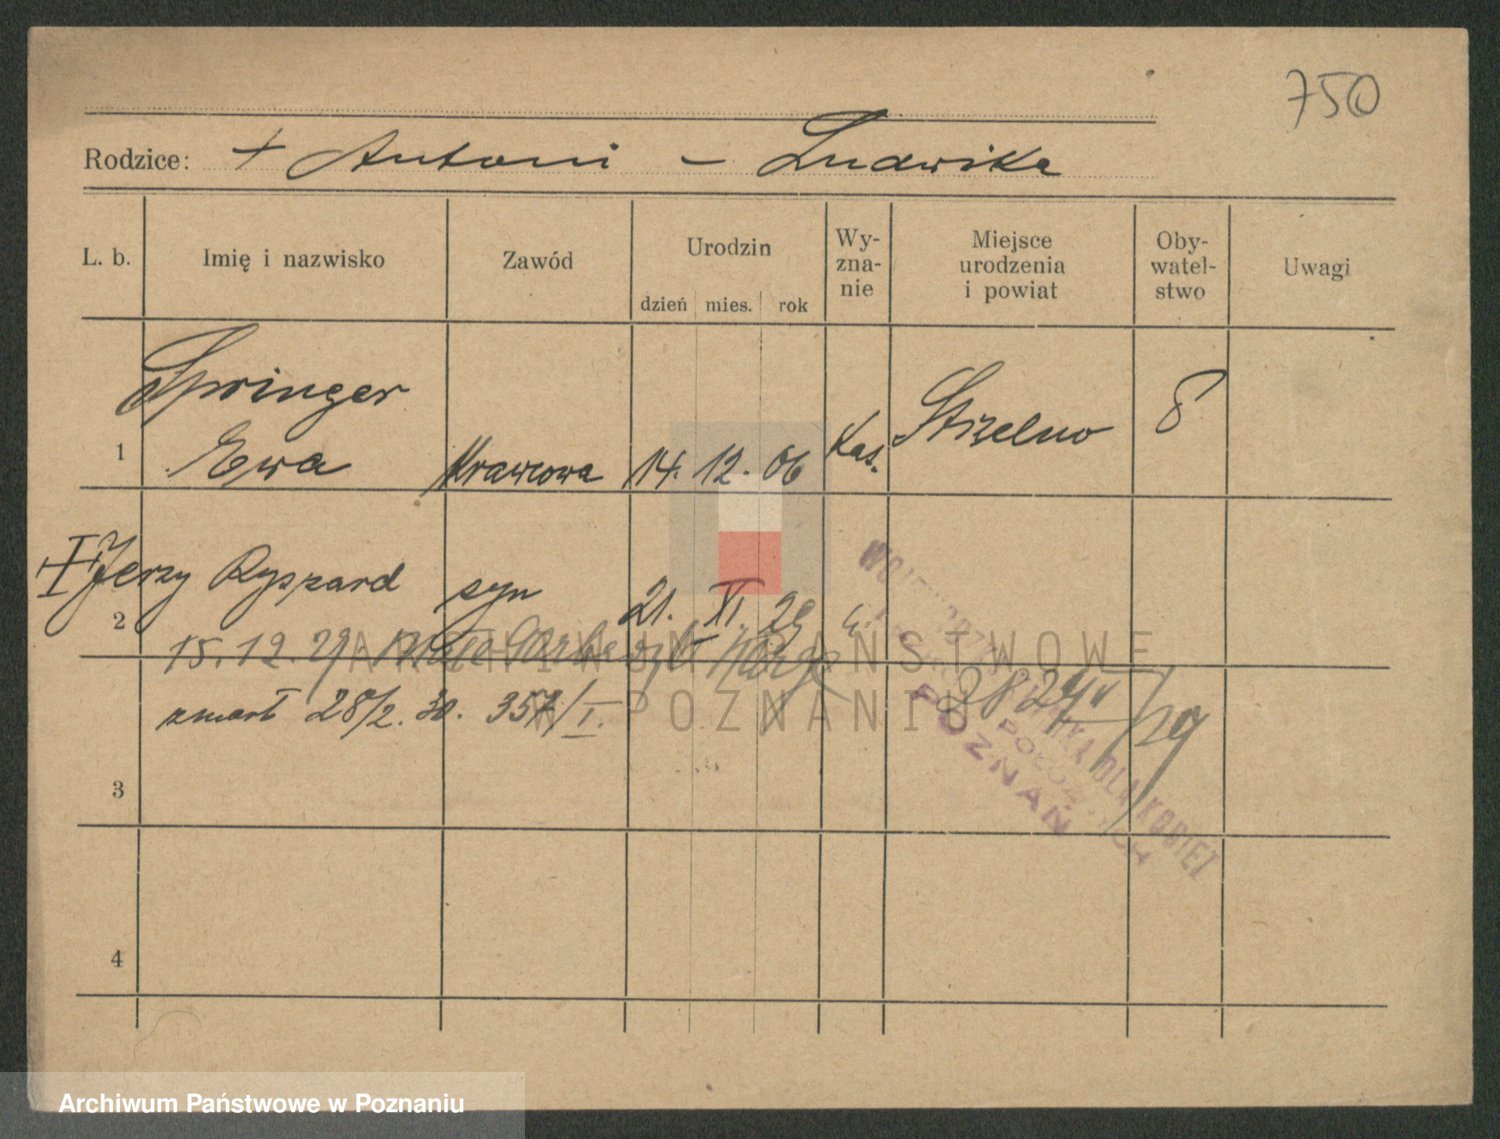 750
Rodzice: + Antoni - Ludwika
L. b. Imię i nazwisko Zawód Urodzin dzień mies. rok Wy-zna-nie Miejsce urodzenia i powiat Oby-watel-stwo Uwagi
Springer
1 Ewa Krawcowa 14. 12. 06 Kat. Strzelno
Jerzy Ryszard syn
2 21. XI. 29
15. 12. 29
ARCHIWUM PAŃSTWOWE
W POZNANIU
zmarł 28/2. 30. 357/I.
DLA KOBIET
POZNAŃ
3
4
Archiwum Państwowe w Poznaniu